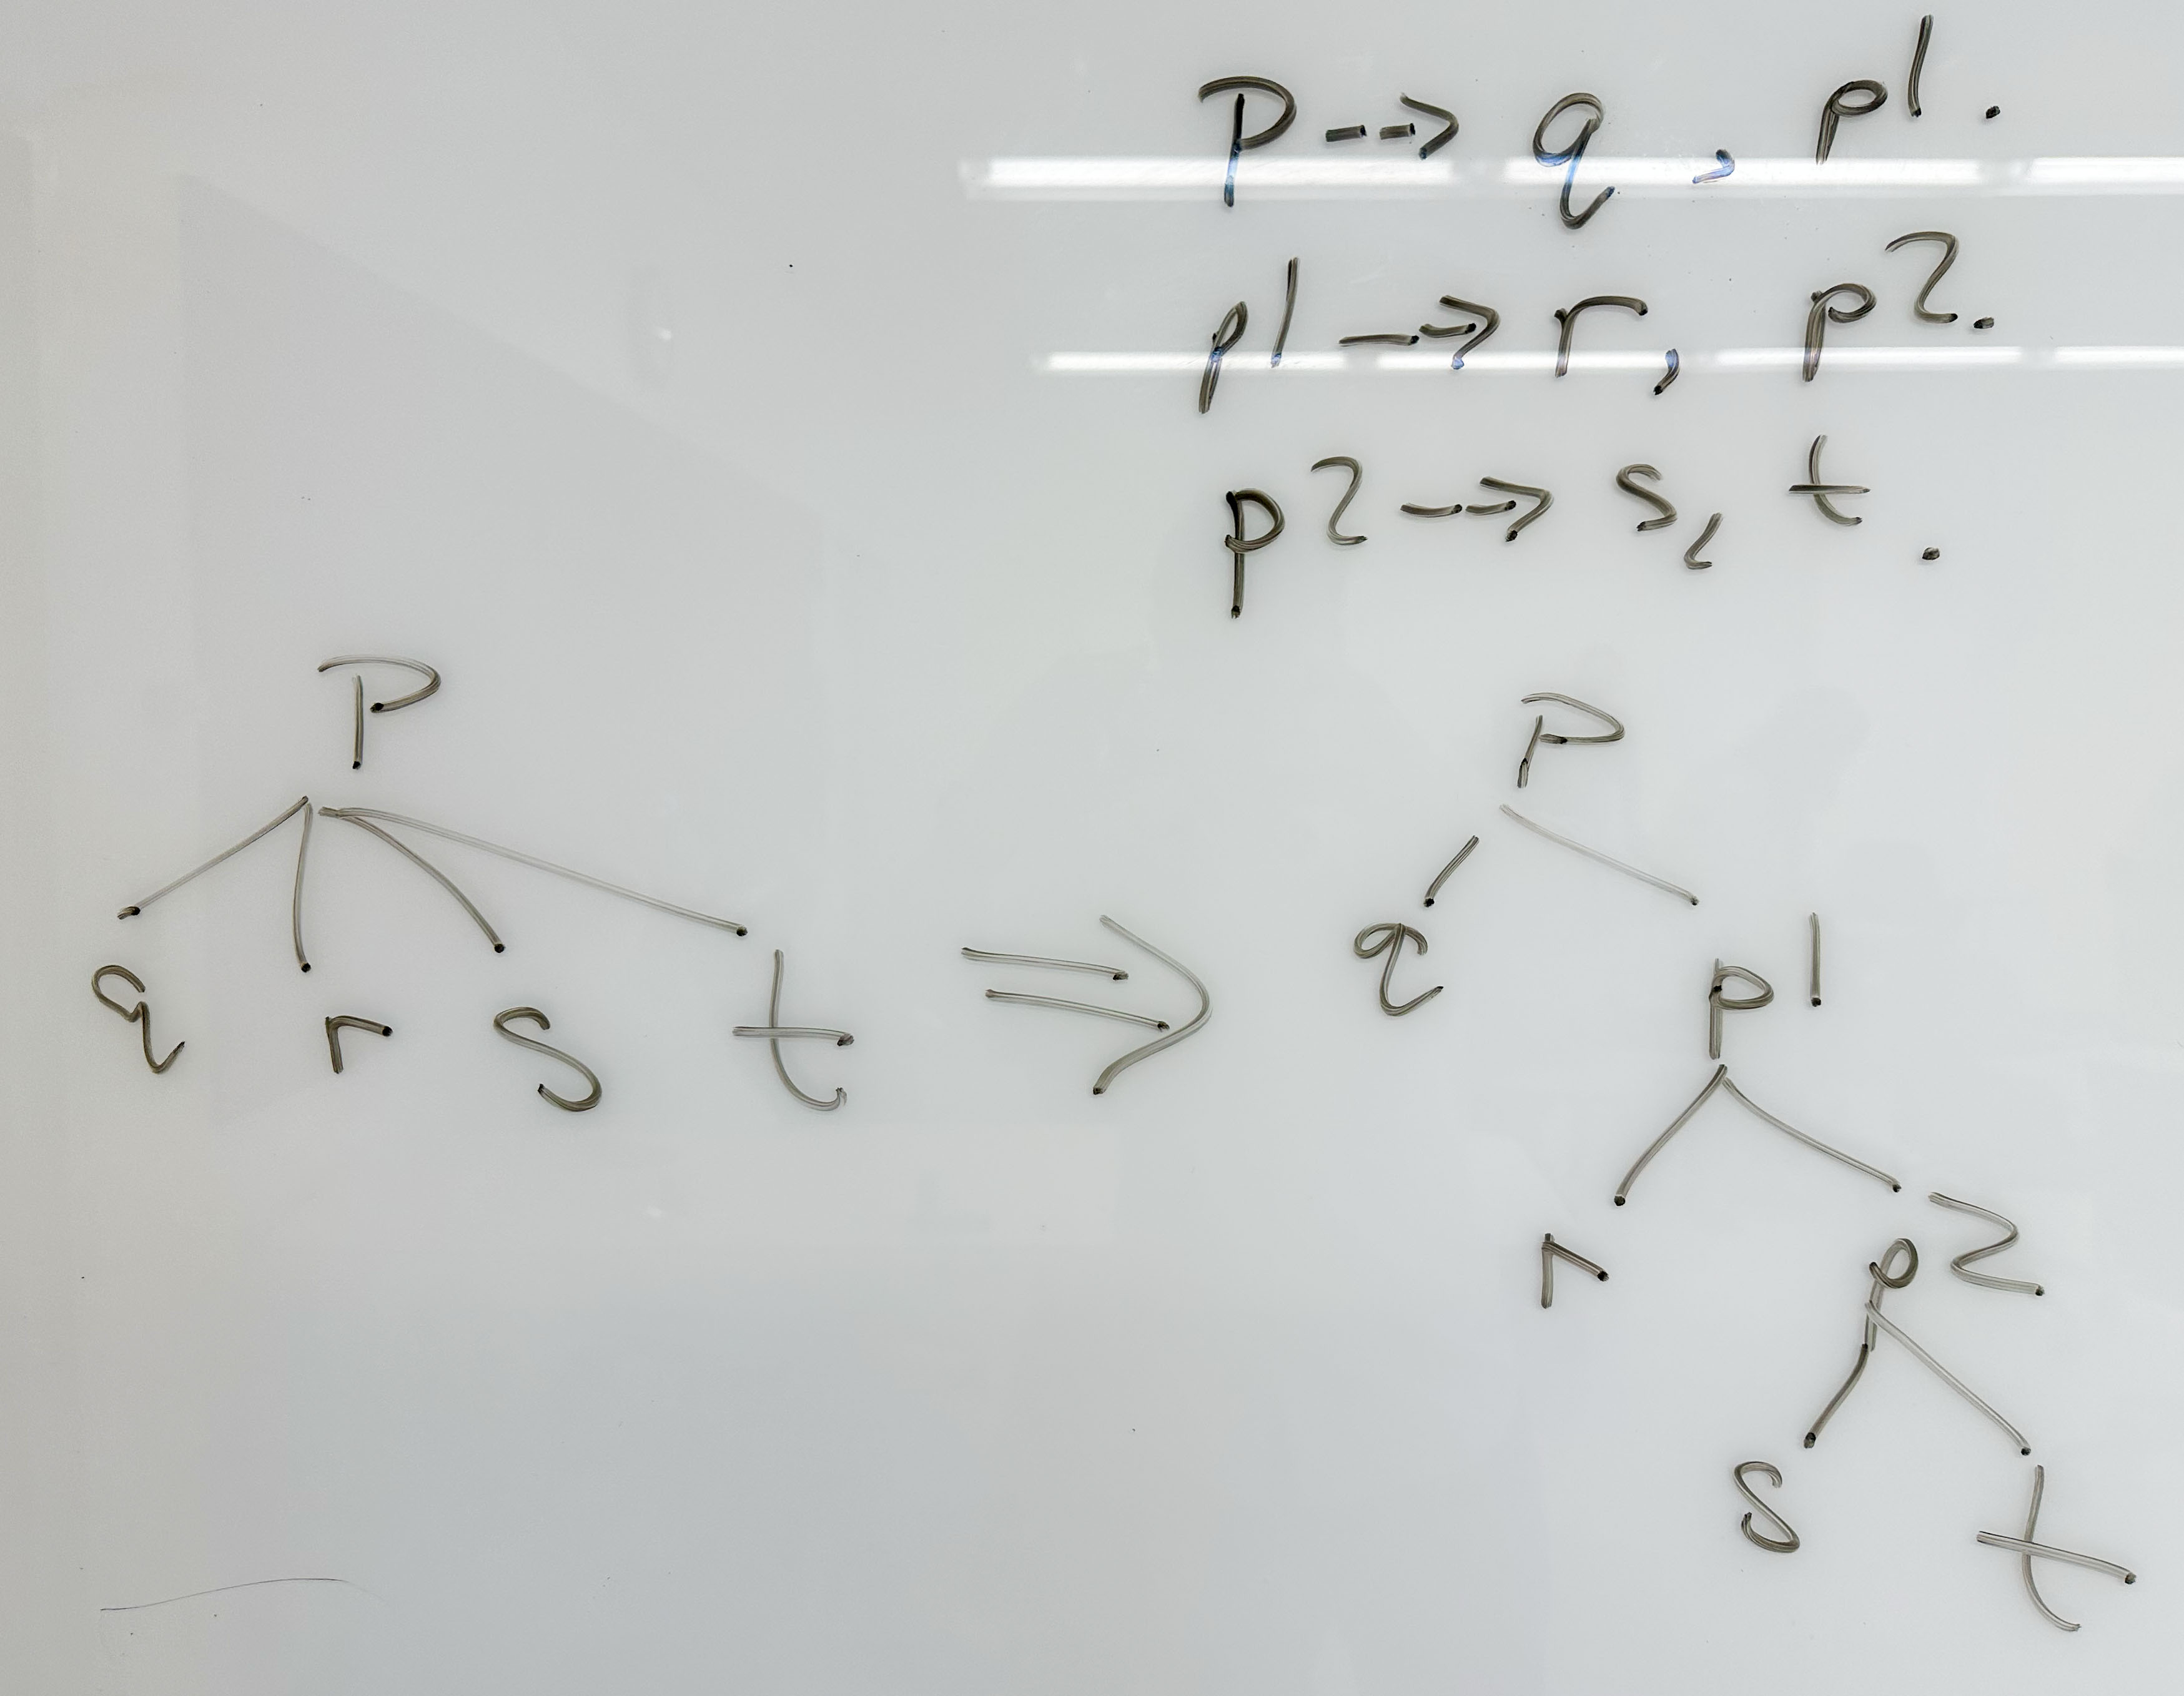 p --> q, p1.
p1 --> r, p2.
p2 --> s, t.
p
q r s t
⇒
p
q p1
r p2
s t